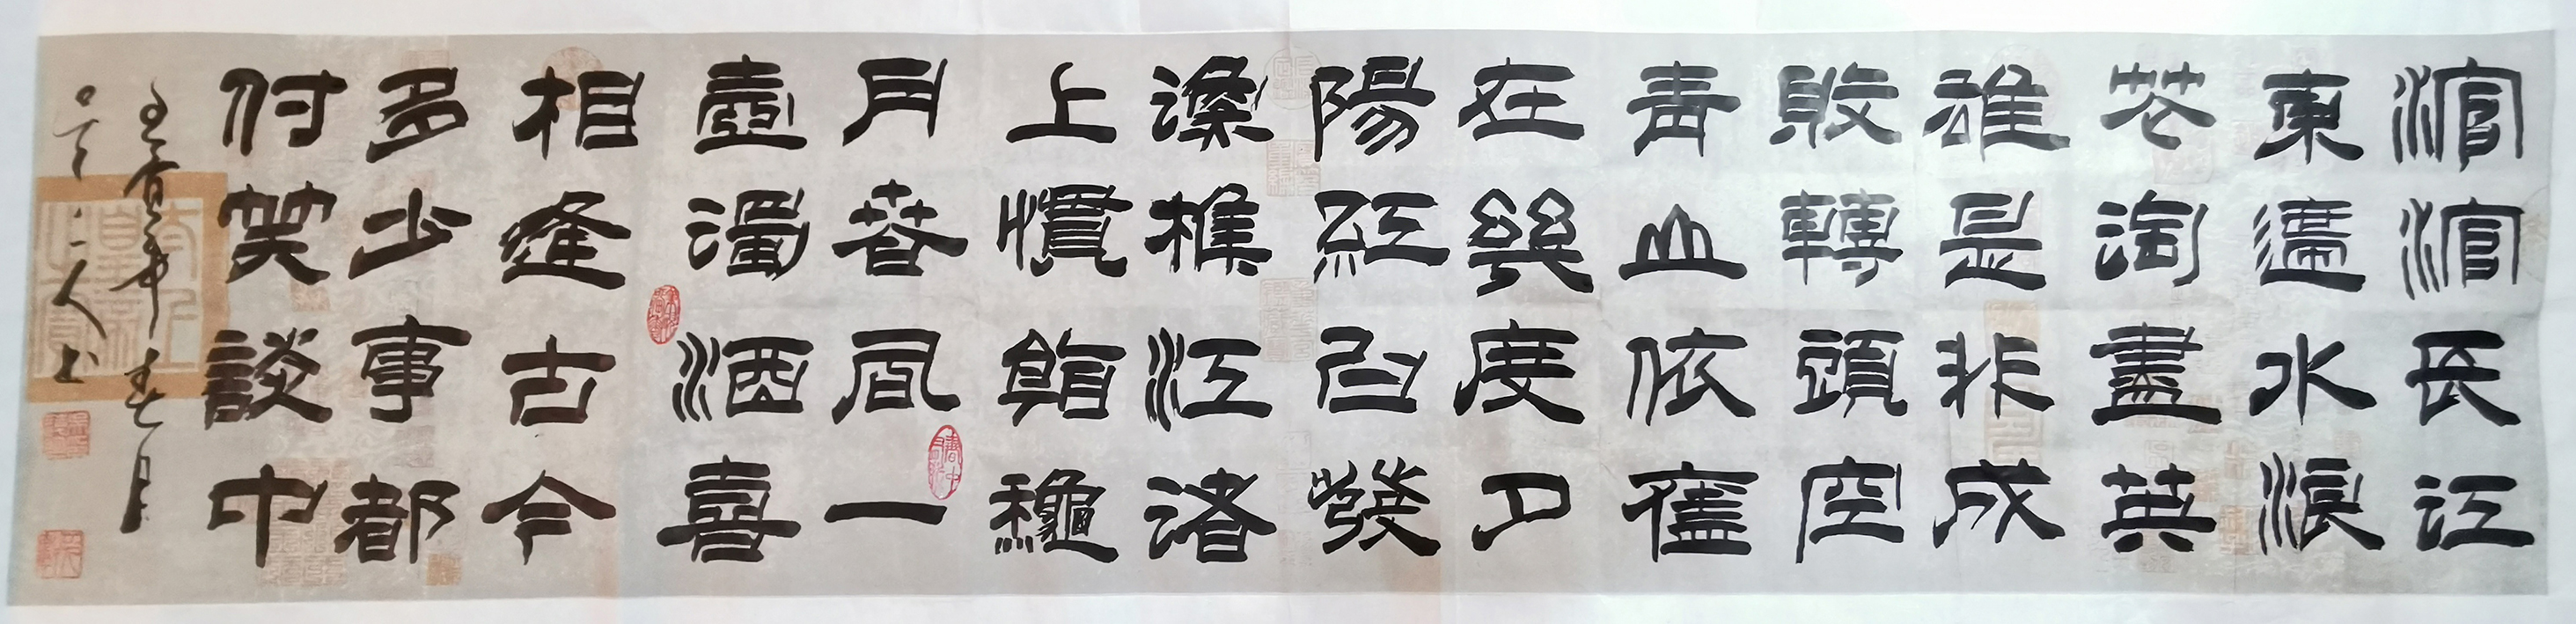 滾滾長江
東逝水浪
花淘盡英
雄是非成
敗轉頭空
青山依舊
在幾度夕
陽紅白發
漁樵江渚
上慣看龝
月春風一
壺濁酒喜
相逢古今
多少事都
付笑談中
壬寅年春月
人书